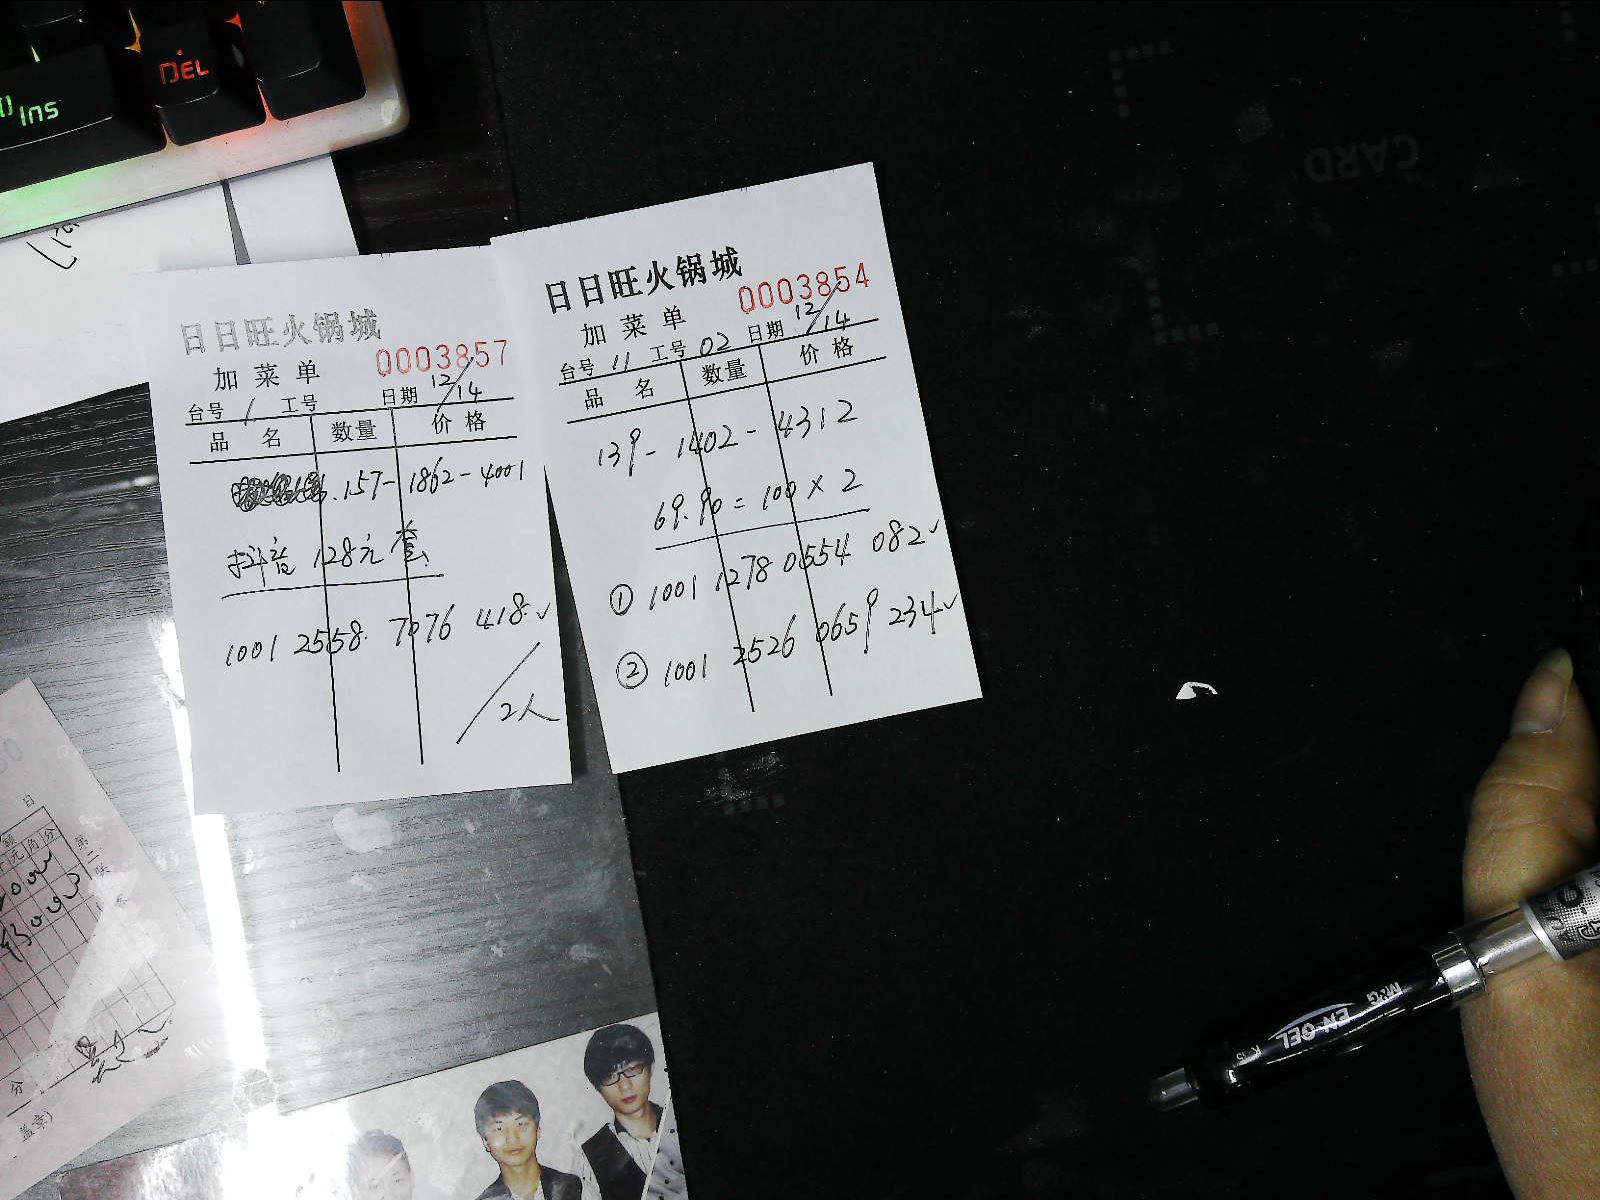 Ins
DEL
CARD
日日旺火锅城
加菜单
0003857
台号 1 工号 日期 12/14
品名 数量 价格
157-1862-4001
抖音 128元 套
1001 2558 7076 418 ✓
2人
日日旺火锅城
加菜单
0003854
台号 11 工号 02 日期 12/14
品名 数量 价格
139-1402-4312
69.90=100×2
① 1001 1278 0554 082 ✓
② 1001 2526 0659 234 ✓
日
元角分
第二联
分
盖章)
M&G
EN-GEL
K-35